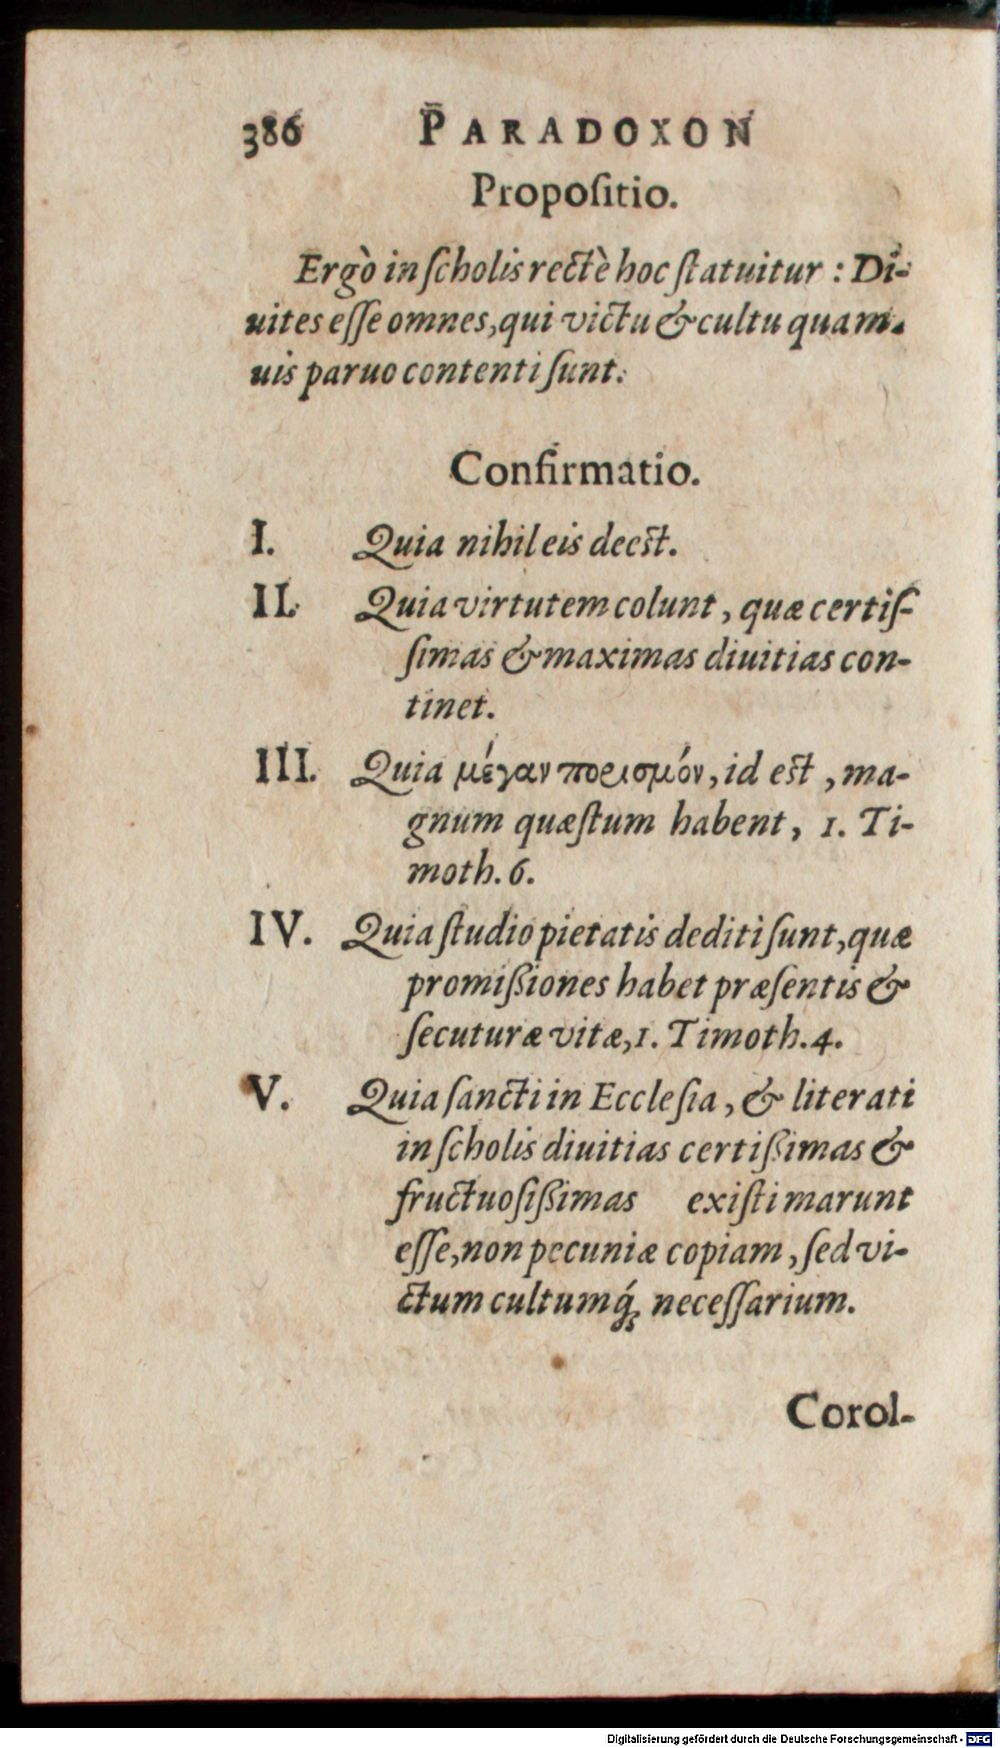 386 PARADOXON
Propoſitio.
Ergò in ſcholis rectè hoc ſtatuitur : Di-
uites eſſe omnes, qui victu & cultu quam-
uis paruo contenti ſunt.
Confirmatio.
I. Quia nihil eis deeſt.
II. Quia virtutem colunt, quæ certiſ-
ſimas & maximas diuitias con-
tinet.
III. Quia μέγαν πορισμόν, id eſt, ma-
gnum quæſtum habent, 1. Ti-
moth. 6.
IV. Quia ſtudio pietatis dediti ſunt, quæ
promißiones habet præſentis &
ſecuturæ vitæ, 1. Timoth. 4.
V. Quia ſancti in Eccleſia, & literati
in ſcholis diuitias certißimas &
fructuoſißimas exiſtimarunt
eſſe, non pecuniæ copiam, ſed vi-
ctum cultumq́; neceſſarium.
Corol-
Digitalisierung gefördert durch die Deutsche Forschungsgemeinschaft - DFG